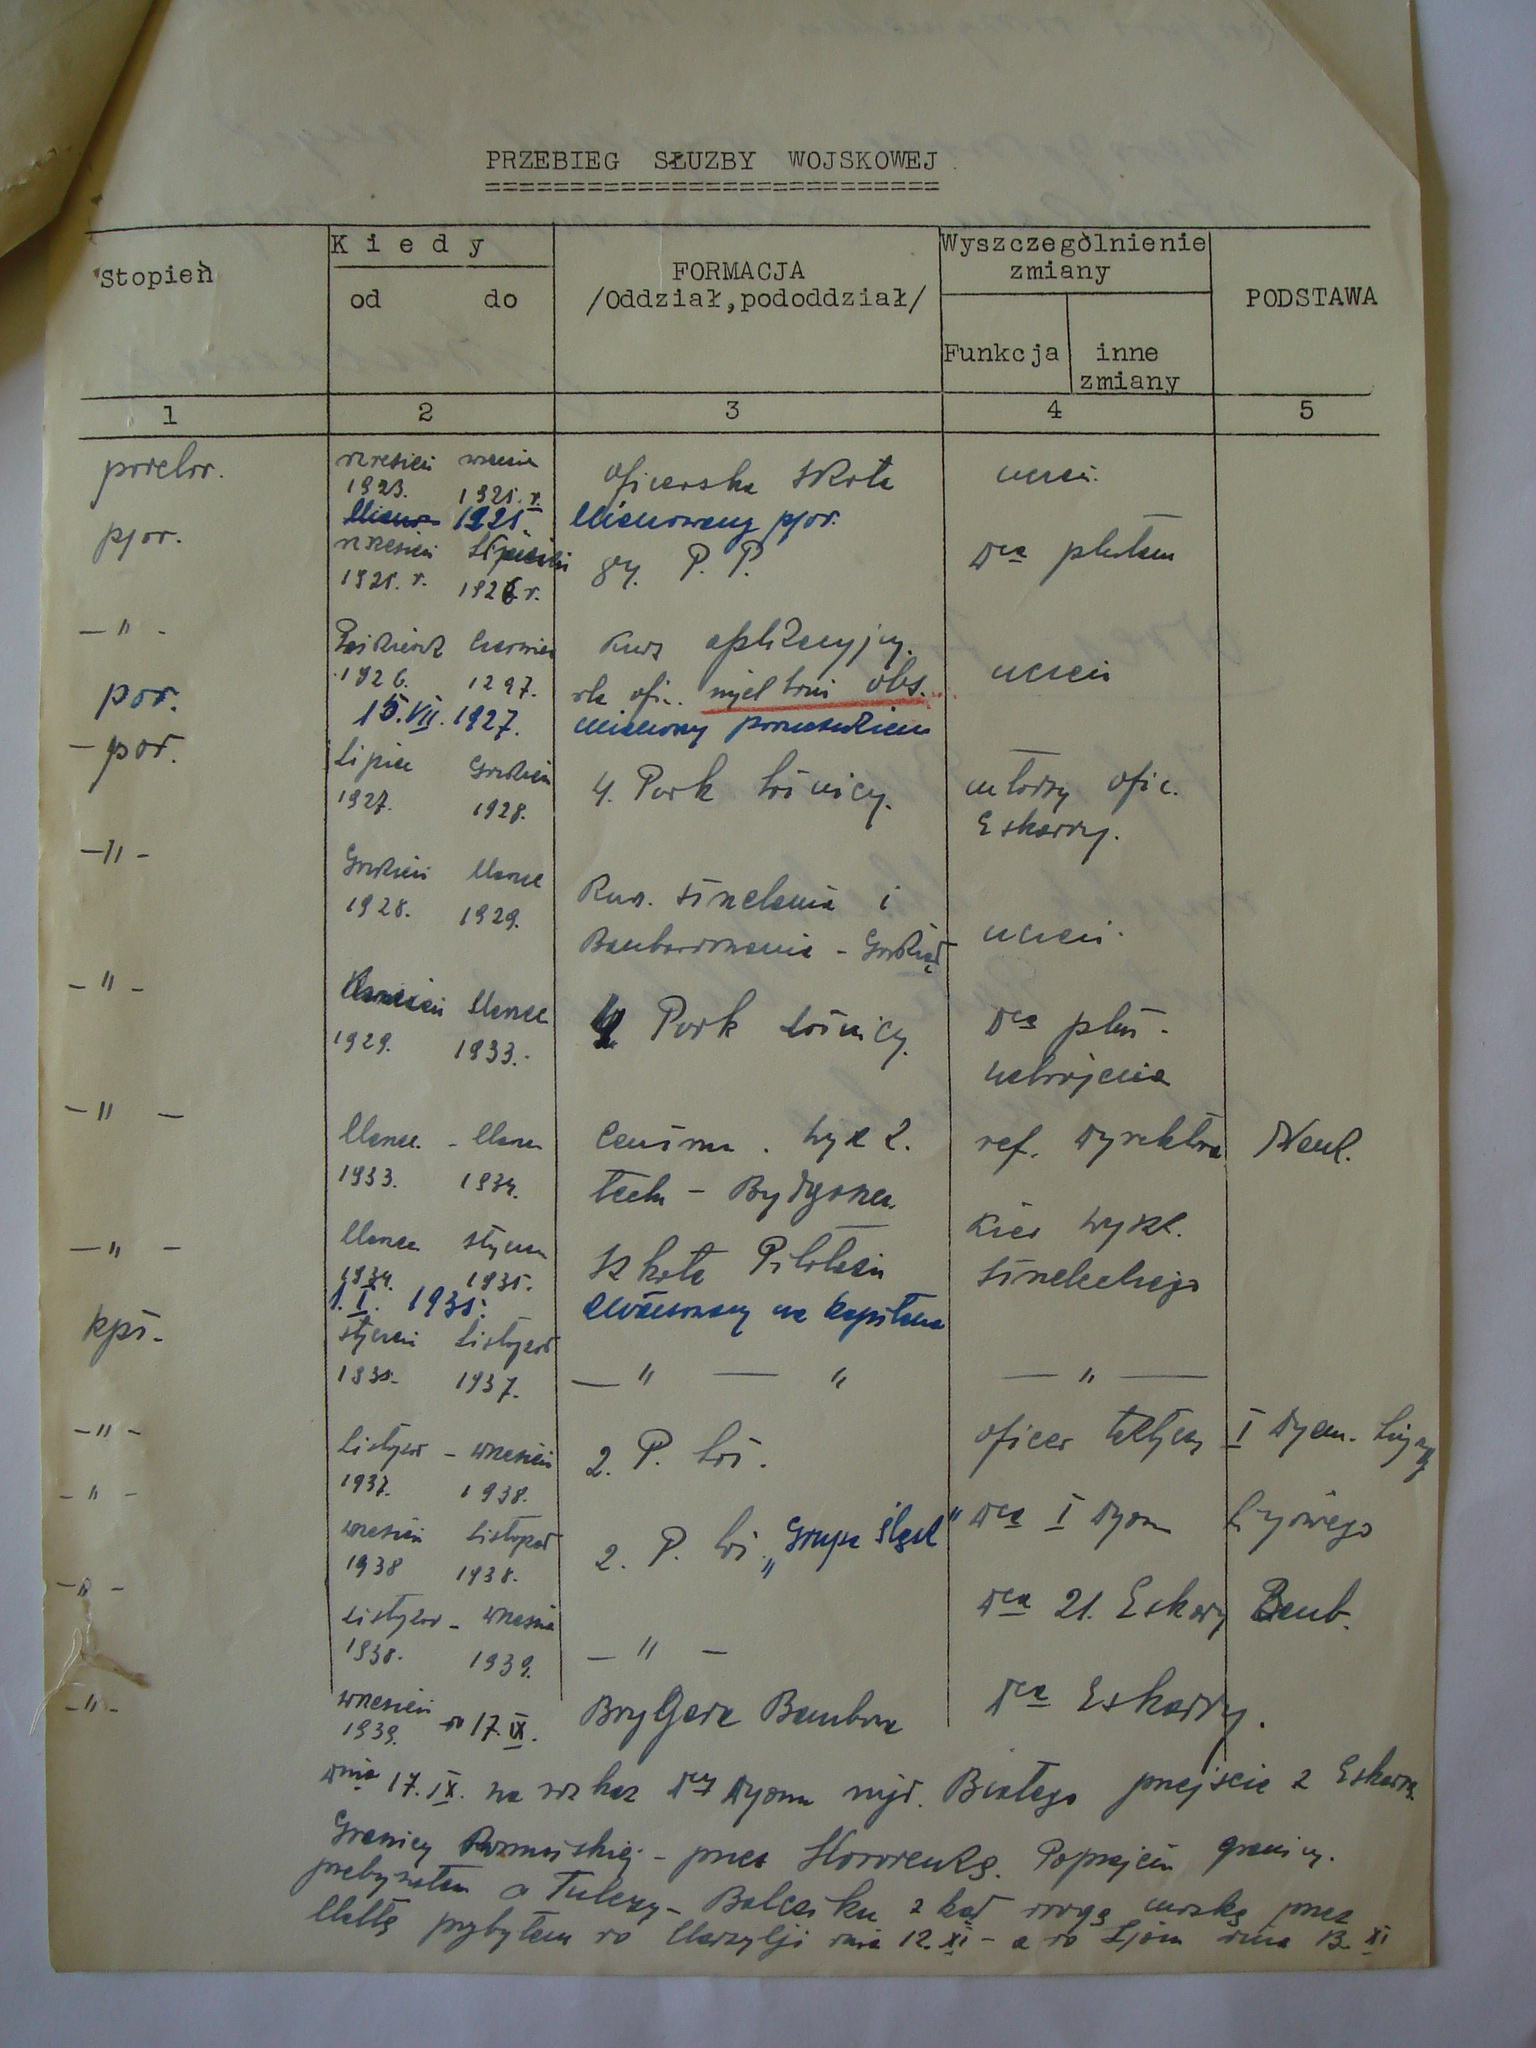 PRZEBIEG SŁUZBY WOJSKOWEJ
Stopień
Kiedy
od do
FORMACJA
/Oddział,pododdział/
Wyszczególnienie
zmiany
Funkcja
inne
zmiany
PODSTAWA
1 2 3 4 5
podchor. wrzesień 1923. 1925. r. oficerska szkoła uczeń.
1925. Mianowany ppor.
ppor. wrzesień 1925. r. 1926 r. P. P. dca plutonu
— " - 1926. 1927. kurs aplikacyjny uczeń
dla ofic. młod. obs.
por. 15. VII. 1927. porucznikiem
- por. Lipiec 1927. Grudzień 1928. 4. Pułk Lotniczy. młodszy ofic.
Eskadry.
— " - Grudzień 1928. Marzec 1929. Kurs. strzelania i
Bombardowania - Grudziądz uczeń.
- " - 1929. Marzec 1933. 4 Pułk Lotniczy. dca plut.
uzbrojenia
- " — Marzec 1933. - 1934. wysz.
tech - Bydgoszcz ref. dyrektora Nauk.
— " - Marzec 1934. 1935. Szkoła Pilotażu kier wyszk.
strzeleckiego
1. I. 1935. Mianowany na kapitana
kpt. styczeń 1935 Listopad 1937. — " — " — " —
- " - Listopad 1937. - wrzesień 1938. 2. P. Lot. oficer taktyczny I Dyon. Liniowy
- " - wrzesień 1938 Listopad 1938. 2. P. Lot. „Grupa Śląsk" dca I dyonu Liniowego
- " - Listopad 1938. - 1939. — " — dca 21. Eskadry Bomb.
- " - wrzesień 1939. do 17. IX. Brygada Bombowa dca Eskadry.
dnia 17. IX. na rozkaz dcy dyonu mjr. Białego przejście z Eskadrą
Granicy Rumuńskiej - przez Horodenkę. Po przejściu granicy.
przebywałem Tulczy - Balcziku z kąd drogą morską przez
Maltę przybyłem do Marsylji dnia 12. XI - a do Ljonu dnia 13. XI